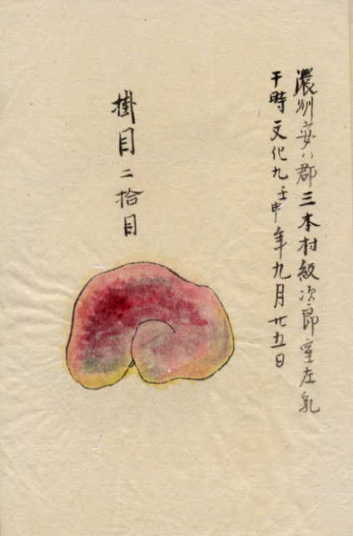 濃州安八郡三本村紋次郎室左乳
于時文化九壬申年九月廿五日
掛目二拾目